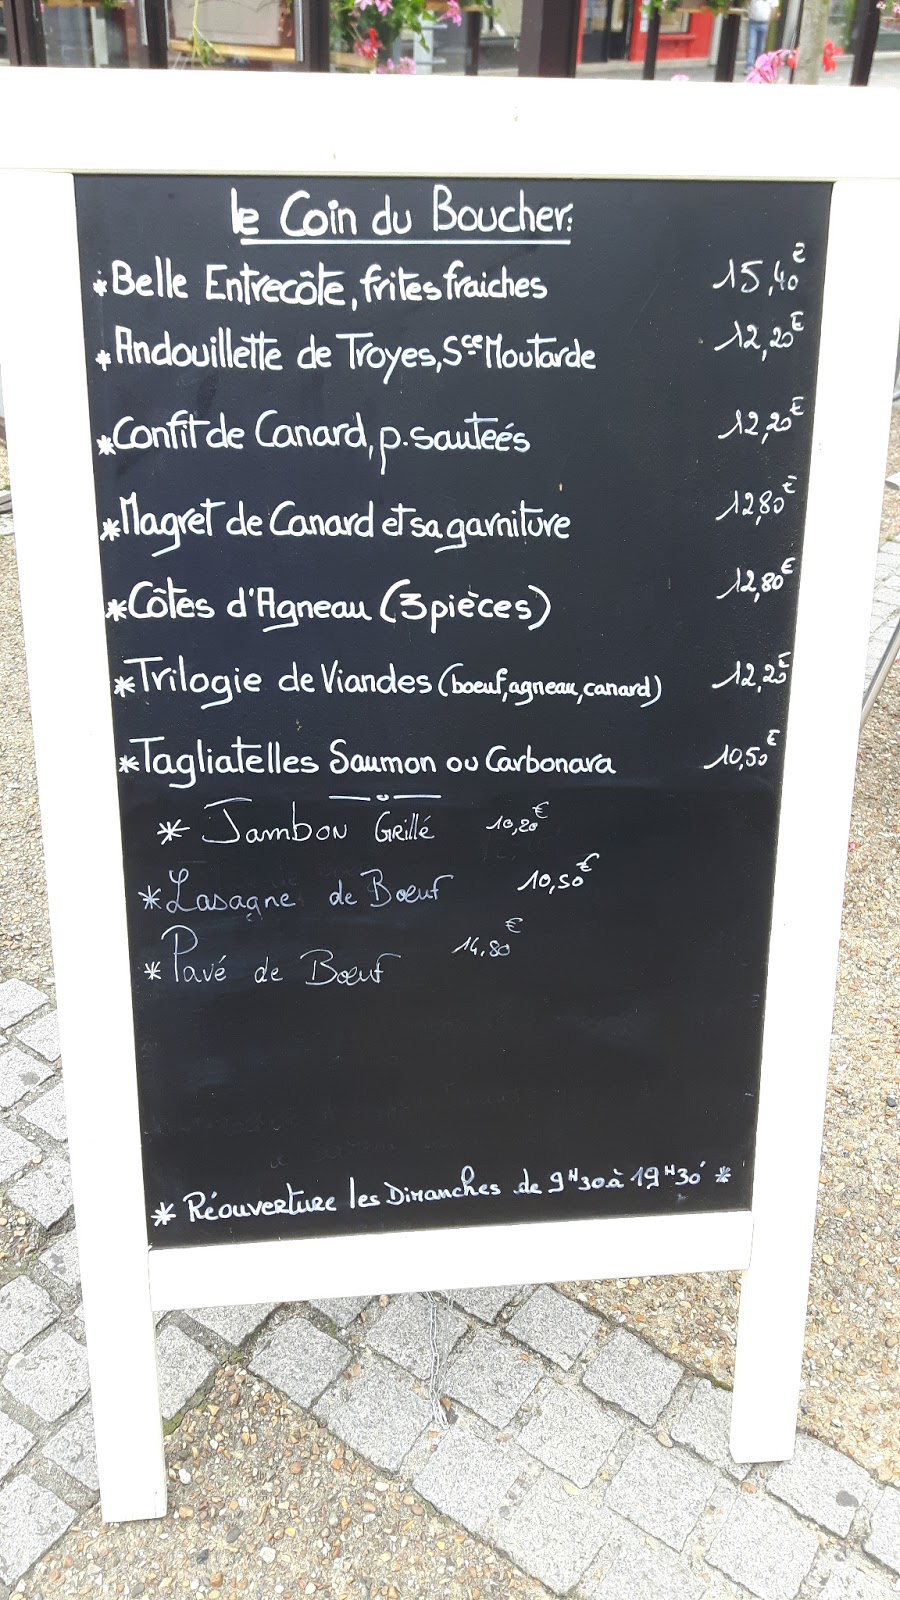 le Coin du Boucher:
* Belle Entrecôte, frites fraiches 15,40€
* Andouillette de Troyes, Sce Moutarde 12,20€
* Confit de Canard, p. sauteés 12,20€
* Magret de Canard et sa garniture 12,80€
* Côtes d'Agneau (3 pièces) 12,80€
* Trilogie de Viandes (boeuf, agneau, canard) 12,25€
* Tagliatelles Saumon ou Carbonara 10,50€
* Jambon Grillé 10,20€
* Lasagne de Bœuf 10,50€
* Pavé de Bœuf 14.80€
* Réouverture les Dimanches de 9H30 à 19H30 *